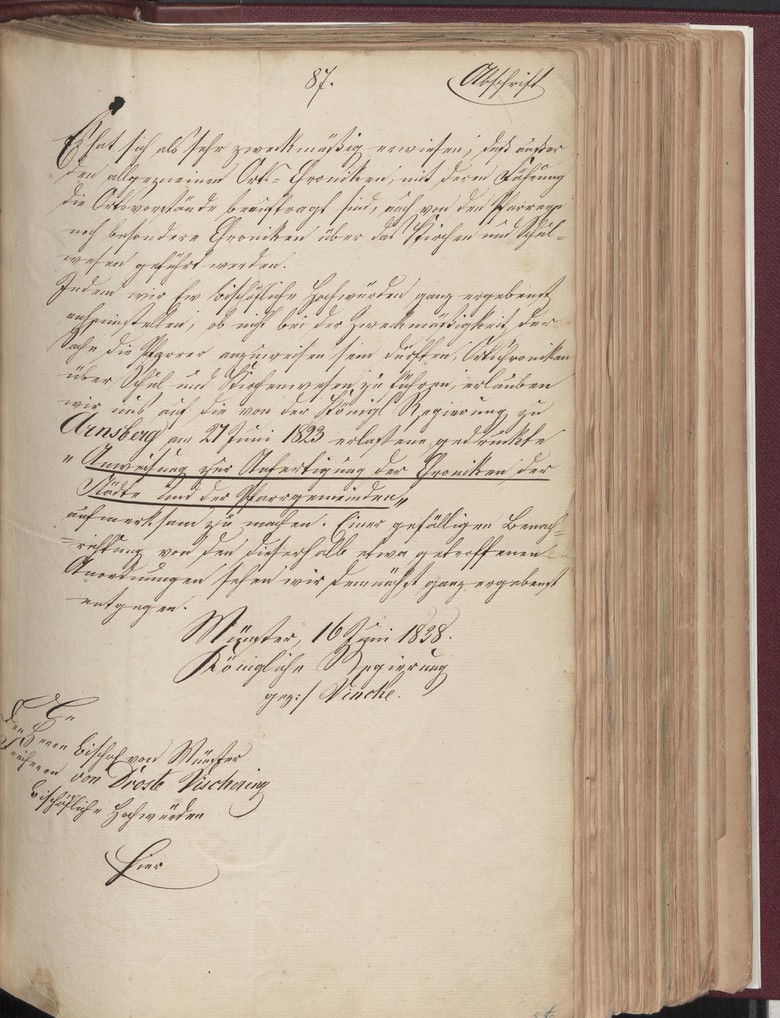 87.
Abschrift
Es hat sich als sehr zweckmäßig erwiesen, daß außer
den allgemeinen Orts-Chroniken, mit deren Führung
die Ortsvorstände beauftragt sind, auch von den Pfarrern
noch besondere Chroniken über das Kirchen und Schul=
wesen geführt werden.
Indem wir Ew Bischöfliche Hochwürden ganz ergebenst
anheimstellen, ob nicht bei der Zweckmäßigkeit der
Sache die Pfarrer anzuweisen sein dürften, Ortschroniken
über Schul und Kirchenwesen zu führen, erlauben
wir uns auf die von der Königl Regierung zu
Arnsberg am 27 Juni 1823 erlassene gedruckte
"Anweisung zur Anfertigung der Chroniken der
Städte und der Pfarrgemeinden"
aufmerksam zu machen. Einer gefälligen Benach=
=richtung von den dieserhalb etwa getroffenen
Anordnungen sehen wir demnächst ganz ergebenst
entgegen.
Münster, 16 Juni 1838.
Königliche Regierung
gez:/ Vincke.
An
den Herrn Bischof von Münster
Freiherrn von Droste Vischering
Bischöfliche Hochwürden
Hier